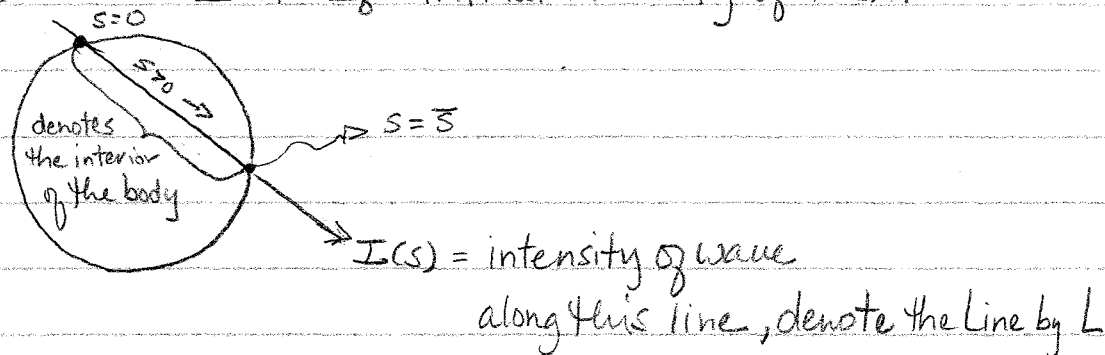 S=0
S>0 →
S = S̅
denotes
the interior
of the body
I(s) = intensity of wave
along this line, denote the Line by L